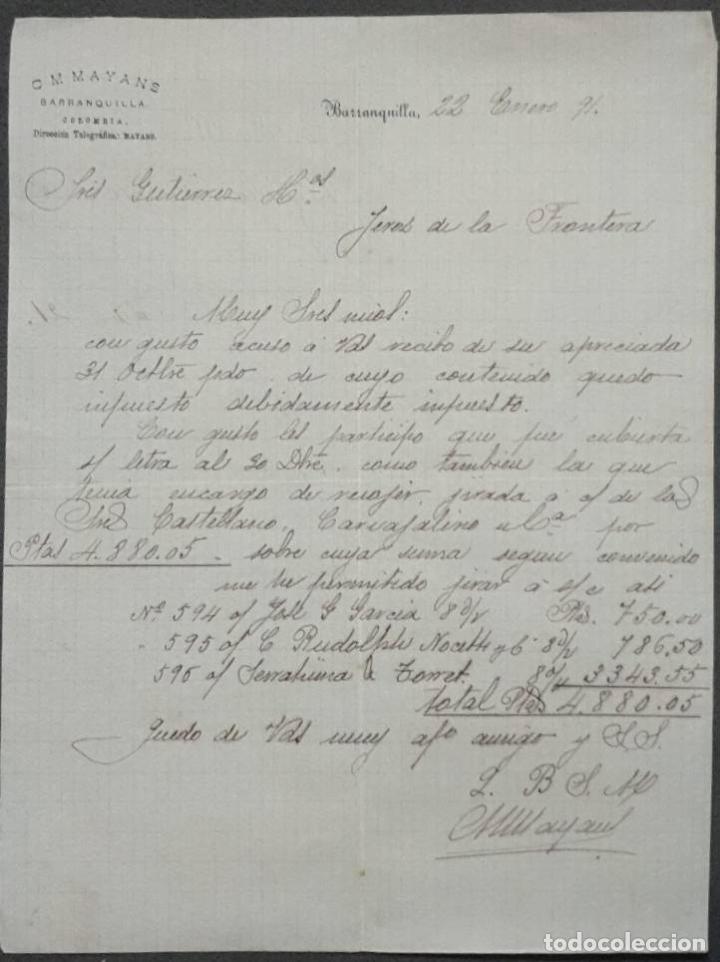 C M MAYANS
BARRANQUILLA.
COLOMBIA.
Dirección Telegráfica: MAYANS.
Barranquilla, 22 Enero 91.
Sres Gutierrez Hos
Jeres de la Frontera
Muy Sres mios:
con gusto acuso á Vds recibo de su apreciada
31 Octbre pdo. de cuyo contenido quedo
impuesto debidamente impuesto.
Con gusto les participo que fue cubierta
s/ letra al 30 Dbre. como tambien la que
tenia encargo de recojer, jirada á o/ de los
Sres Castellano, Carvajalino & Ca por
Ptas 4.880.05 - sobre cuya suma segun convenido
me he permitido jirar á s/c asi
No. 594 o/ Jose G Garcia 8 d/v Pts. 750.00
" 595 o/ C. Rudolph Nocetti y Co 8 d/v 786.50
596 o/ & Torret. 8 d/v 3343.55
total Ptas 4.880.05
Quedo de Vds muy afo amigo y S.S.
Q. B S. M
CMMayans
todocoleccion